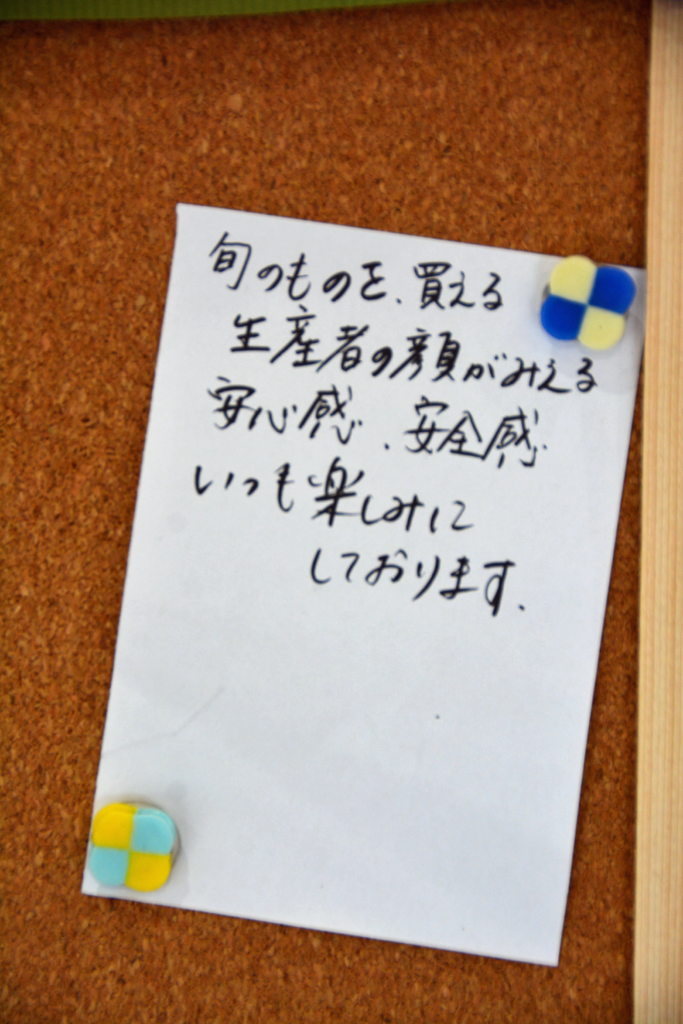 旬のものを、買える
生産者の顔がみえる
安心感、安全感
いつも楽しみに
しております.